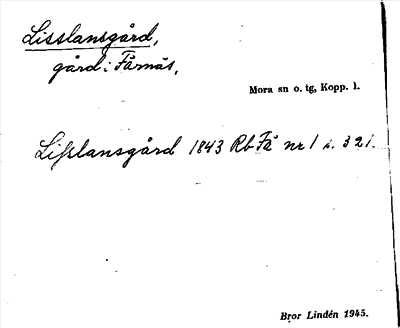 Lisslansgård,
gård i Färnäs,
Mora sn o. tg, Kopp. l.
Lisslansgård 1843 Rb Fä nr 1 s. 321.
Bror Lindén 1945.